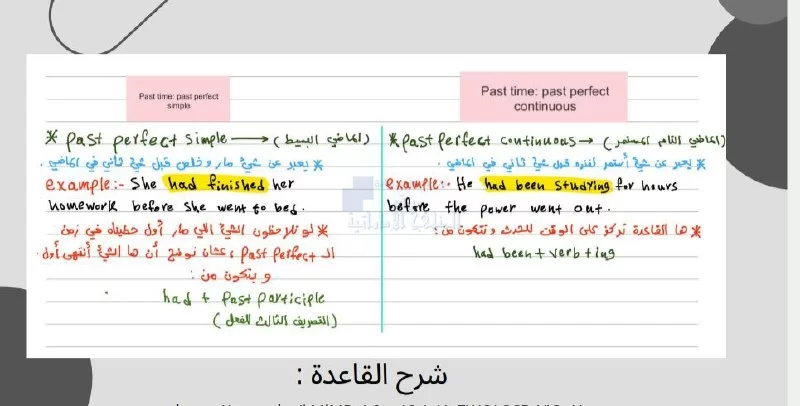 Past time: past perfect
simple
* past perfect simple → (الماضي البسيط)
* يعبر عن شيء صار وخلص قبل شيء ثاني في الماضي .
example:- She had finished her
homework before she went to bed.
* لو تلاحظون الشيء اللي صار أول حطيناه في زمن
الـ past perfect ، عشان نوضح أن هالشيء أنتهى أول .
و يتكون من :
had + past participle
(التصريف الثالث للفعل)
Past time: past perfect
continuous
* past perfect continuous → (الماضي التام المستمر)
* يعبر عن شيء أستمر لفترة قبل شيء ثاني في الماضي .
example:- He had been studying for hours
before the power went out.
* ها القاعدة تركز على الوقت للحدث و تتكون من :
had been + verb + ing
شرح القاعدة :